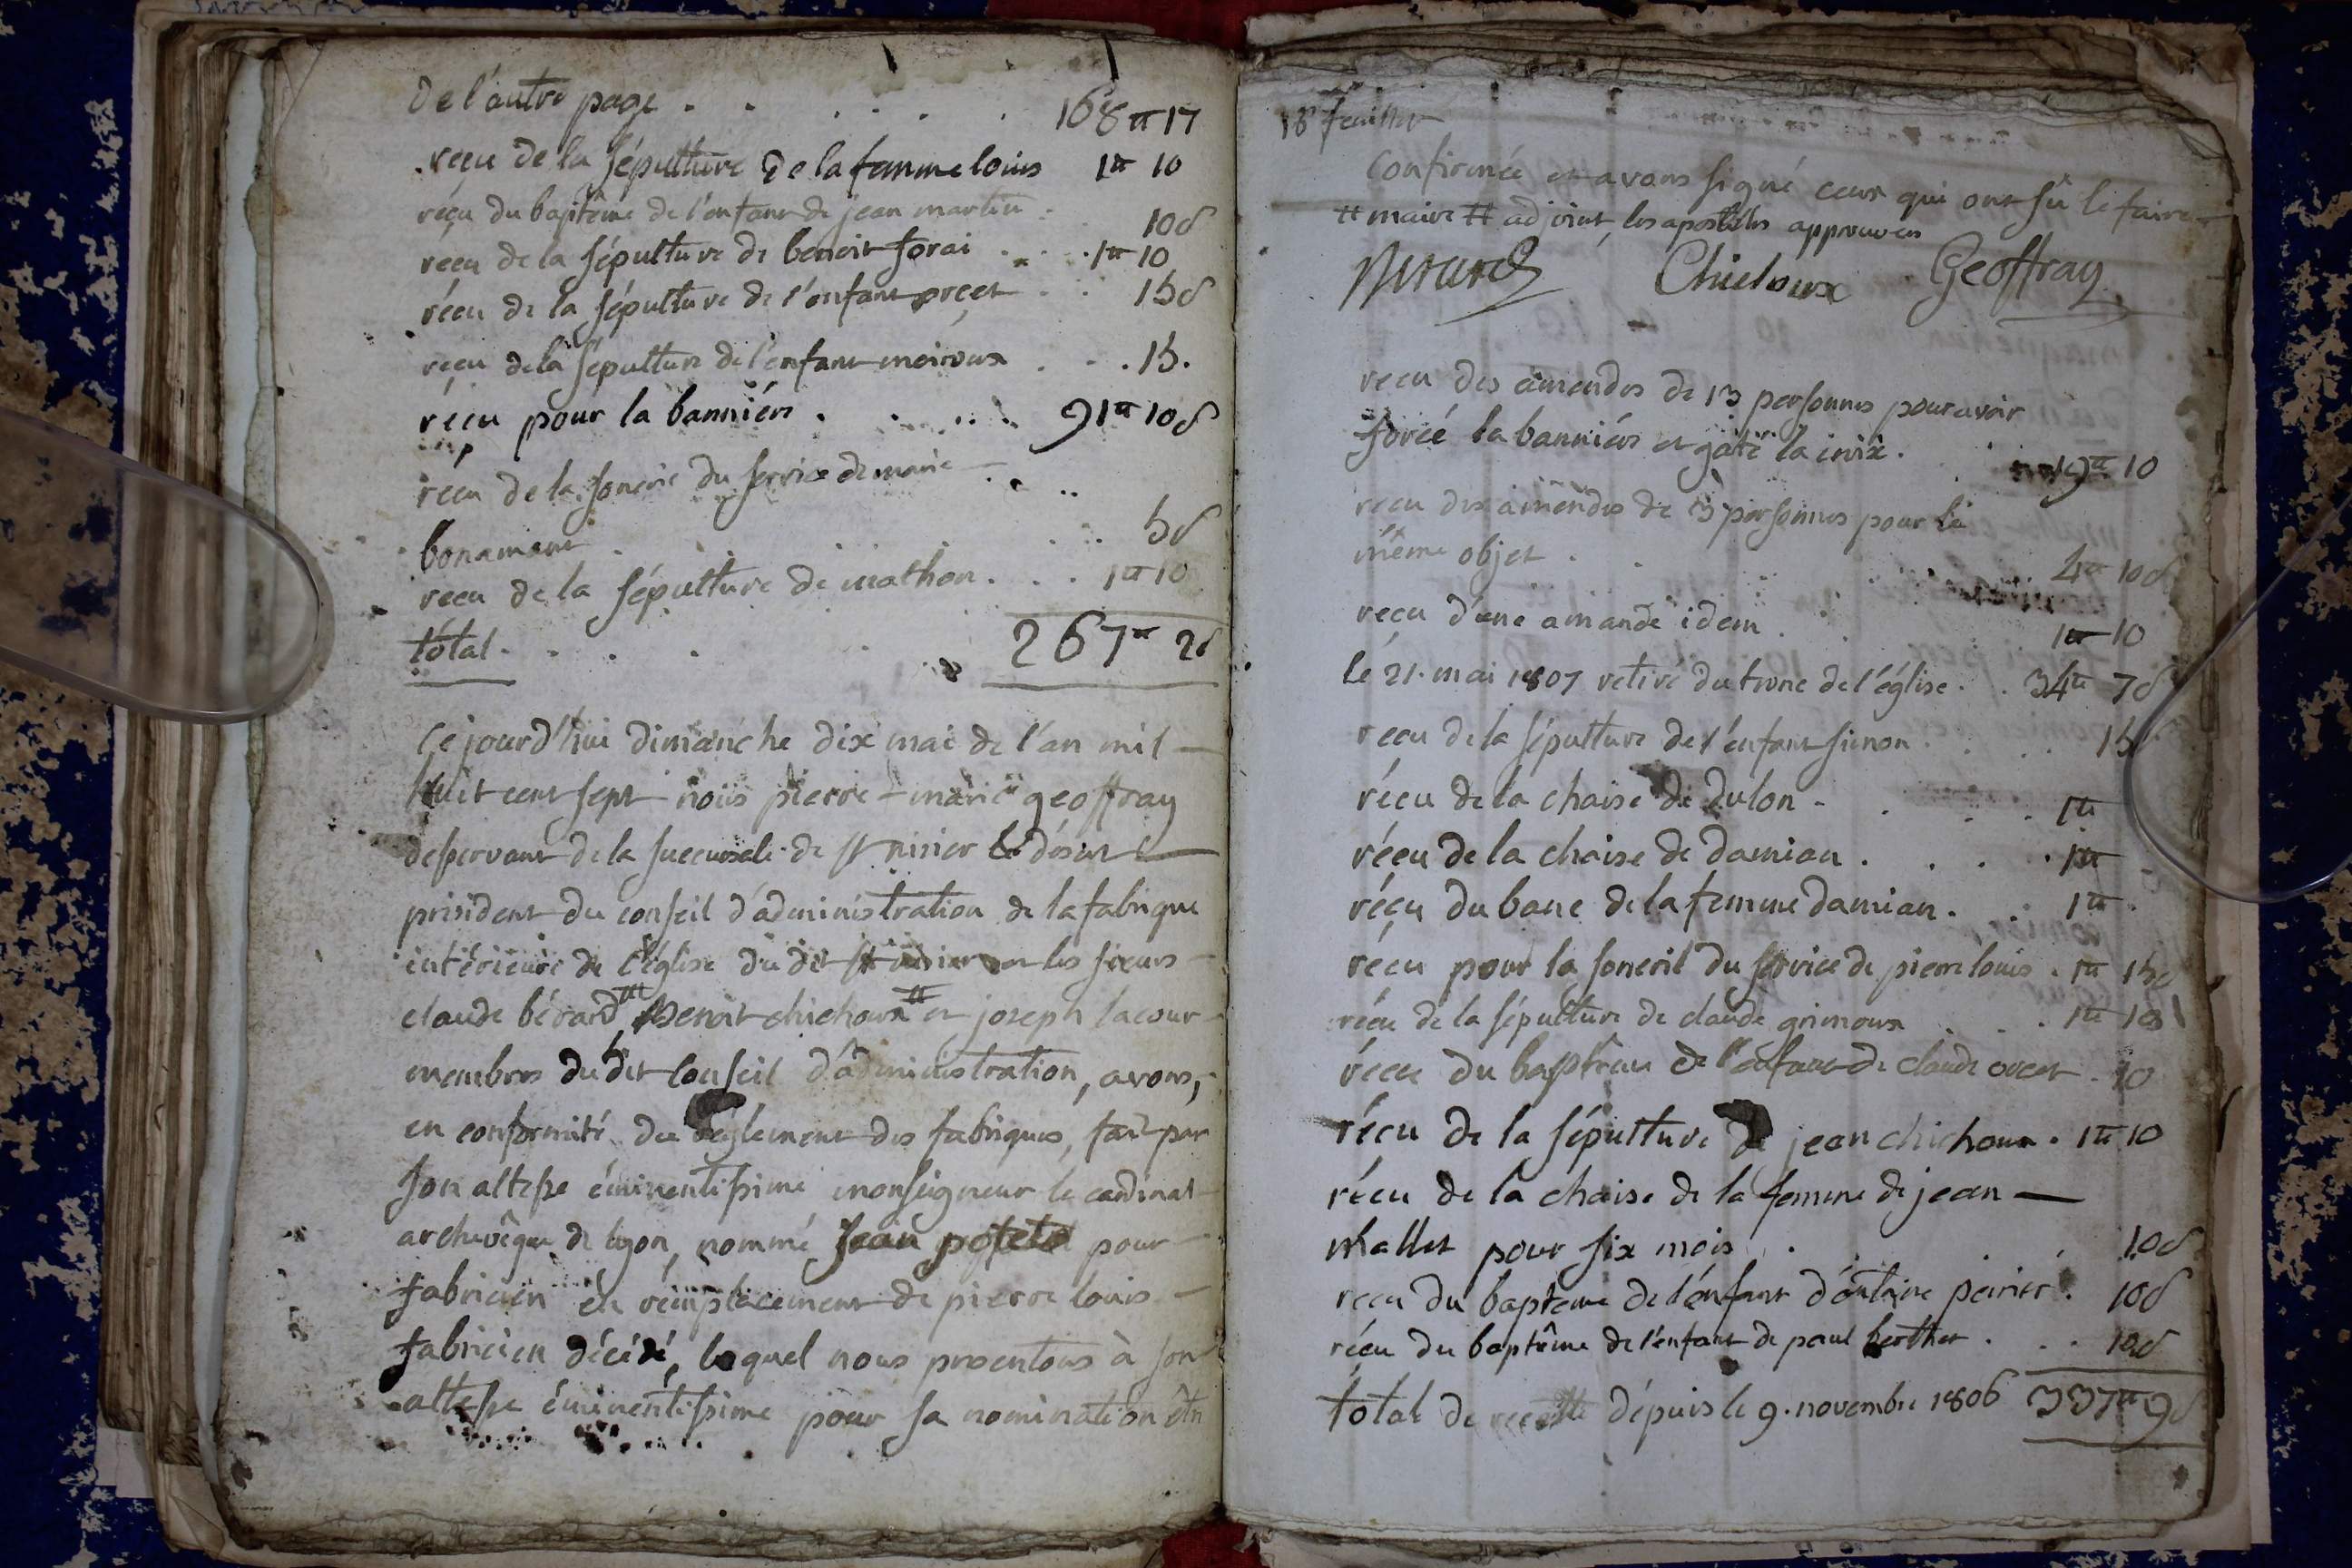 de l'autre page . . . . . . 168 ₶ 17
reçu de la sépulture de la femme louis 1₶ 10
réçu du baptême de l'enfant de jean martin . 10 s
réçu de la sépulture de benoit forai . . . 1₶ 10
réçu de la sépulture de l'enfant . . 15 s
reçu de la sépulture de l'enfant moiroux . . . 15.
réçu pour la banniére . . . . . 91₶ 10 s
reçu de la sonerie du service de marie —
bonamant . . . . 5 s
recu de la sépulture de mathon . . . 1₶ 10
tótal . . . . . 267₶ 2 s
Ce jourd'hui dimanche dix mai de l'an mil —
huit cent sept nous pierre-marie geoffray
desservant de la succursale de st nizier le désert —
président du conseil d'administration de la fabrique
intérieure de l'église du dit st nizier les sieurs —
claude bérard, Benoit chichoux ⌗ et joseph lacour
membres du dit Conseil d'administration, avons,
en conformité du réglement des fabriques, fait par
son altesse éminentissime monseigneur le cardinal
archevêque de lyon, nommé jean pour —
fabricien en remplacement de pierre louis —
fabricien décédé, lequel nous presentons à son
altesse éminentissime pour sa nomination être
18e feuillet
Confirmée et avons signé ceux qui ont sû le faire
⌗ maire ⌗ adjoint, les apostilles approuvées
Berard Chichoux Geoffray
recu des amendes de 13 personnes pour avoir
forcé la banniére et gâté la croix . 19₶ 10
recu des amendes de 3 personnes pour le
même objet . . 4₶ 10 s
reçu d'une amande idem . . 1₶ 10
le 21. mai 1807 retiré du tronc de l'église . . 34₶ 7 s
recu de la sépulture de l'enfant simon . . . 15 s
réçu de la chaise de dulon . . . . 1₶
réçu de la chaise de damian . . . . 1₶
réçu du banc de la femme damian . . 1₶ .
réçu pour la sonerie du service de pierre louis . 1₶ 15 s
réçu de la sépulture de claude grimoux . . . 1₶ 10 s
réçu du baptême de l'enfant de claude . 10
réçu de la sépulture de jean chichoux . 1₶ 10
réçu de la chaise de la femme de jean —
mallet pour six mois . . . . 10 s
recu du bapteme de l'enfant d'antoine perier . 10 s
réçu du baptême de l'enfant de paul berthet . . . 10 s
tótal de recette dépuis le 9. novembre 1806 337₶ 9 s